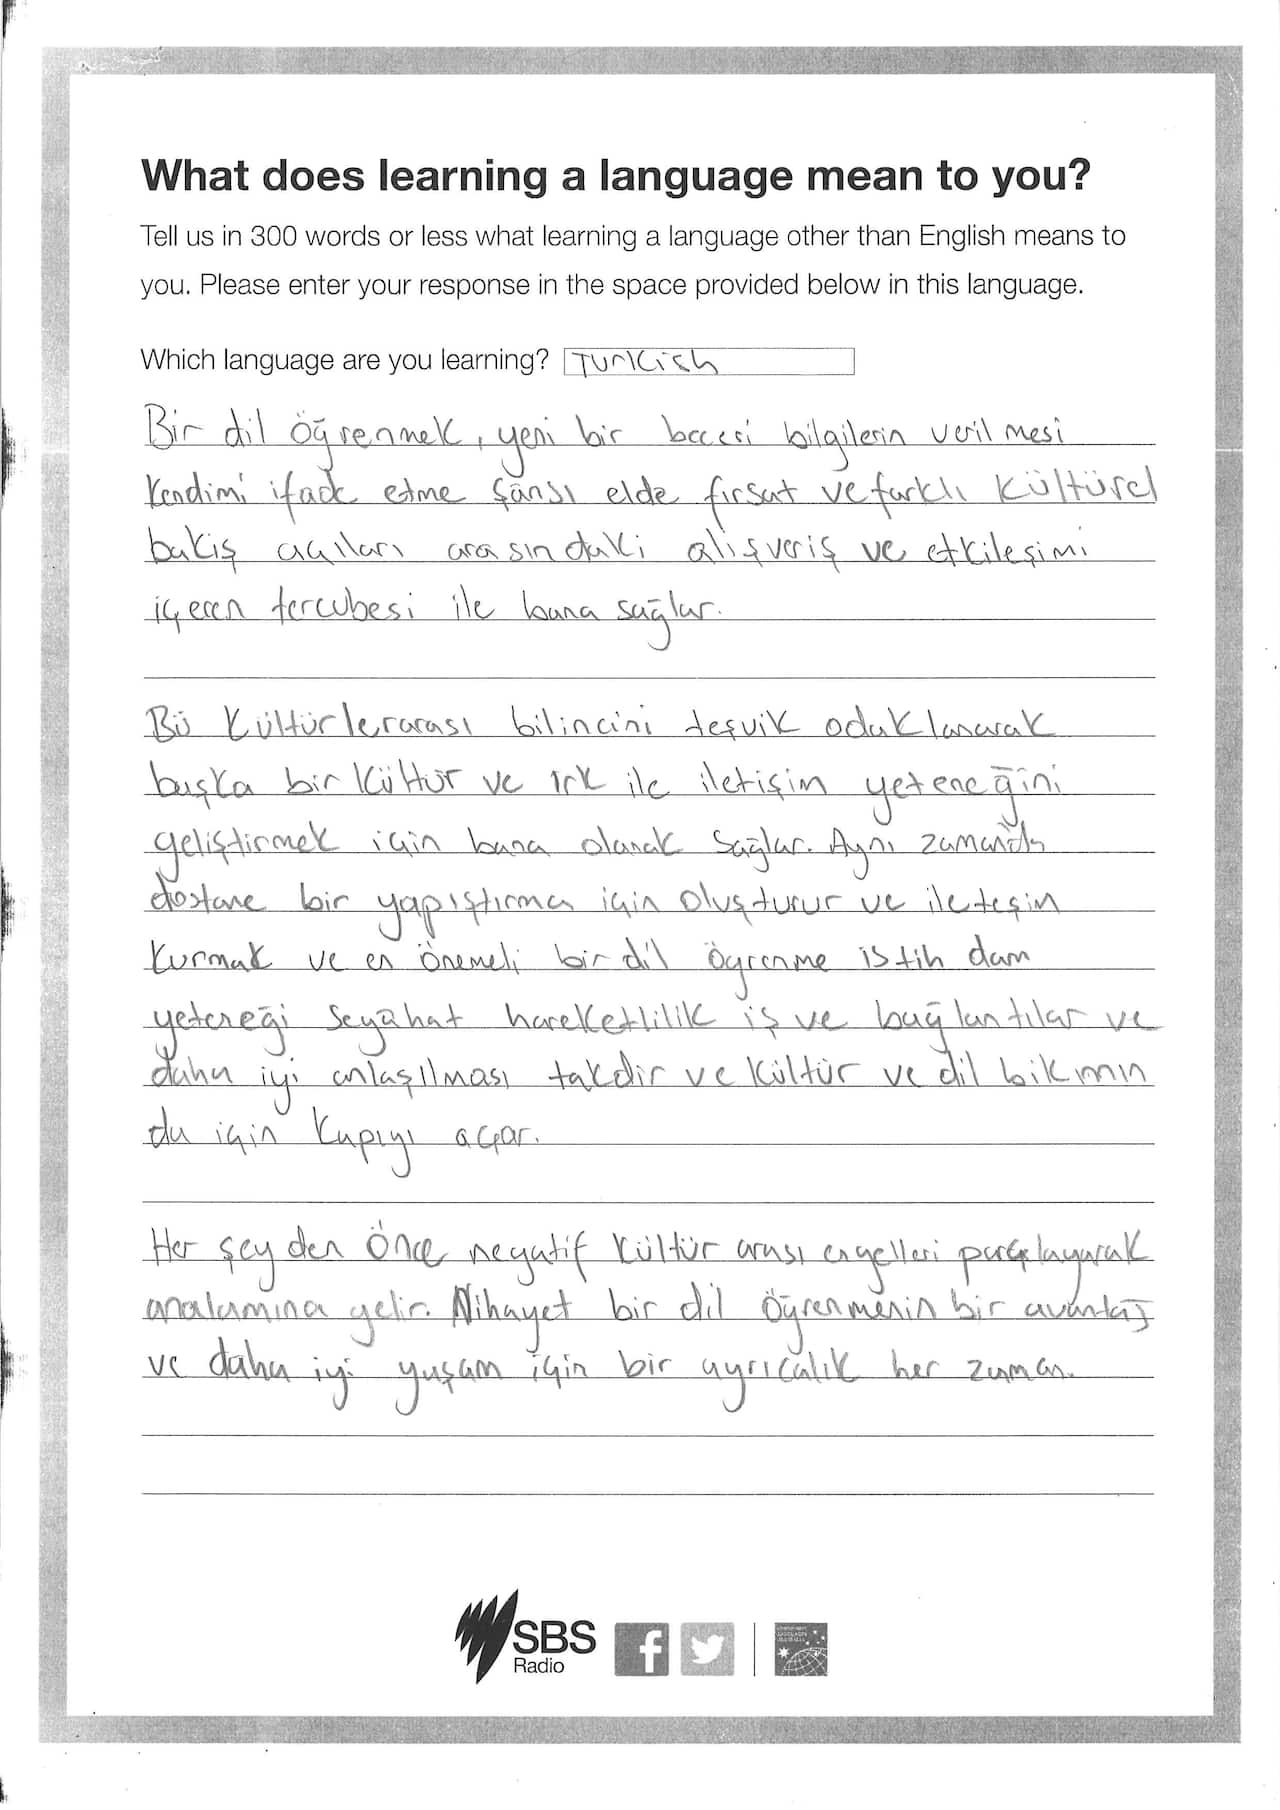 What does learning a language mean to you?
Tell us in 300 words or less what learning a language other than English means to
you. Please enter your response in the space provided below in this language.
Which language are you learning? Turkish
Bir dil öğrenmek, yeni bir beceri bilgilerin verilmesi
kendimi ifade etme şansı elde fırsat ve farklı kültürel
bakış açıları arasındaki alişveriş ve etkileşimi
içeren tercubesi ile bana sağlar.
Bü kültürlerarası bilincini teşvik odaklanarak
başka bir kültür ve ırk ile iletişim yeteneğini
geliştirmek için bana olanak sağlar. Aynı zamanda
dostane bir yapıştırma için oluşturur ve ileteşin
kurmak ve en önemeli bir dil ögrenme istih dam
yeteneği seyâhat hareketlilik iş ve bağlantılar ve
daha iyi anlaşılması takdir ve kültür ve dil
da için kapıyı açar.
Her şey den önce negatif kültür arası engelleri parçlayarak
analamına gelir. Nihayet bir dil öğrenmenin bir avantaj
ve daha iyi yaşam için bir ayrıcalık her zaman.
SBS
Radio